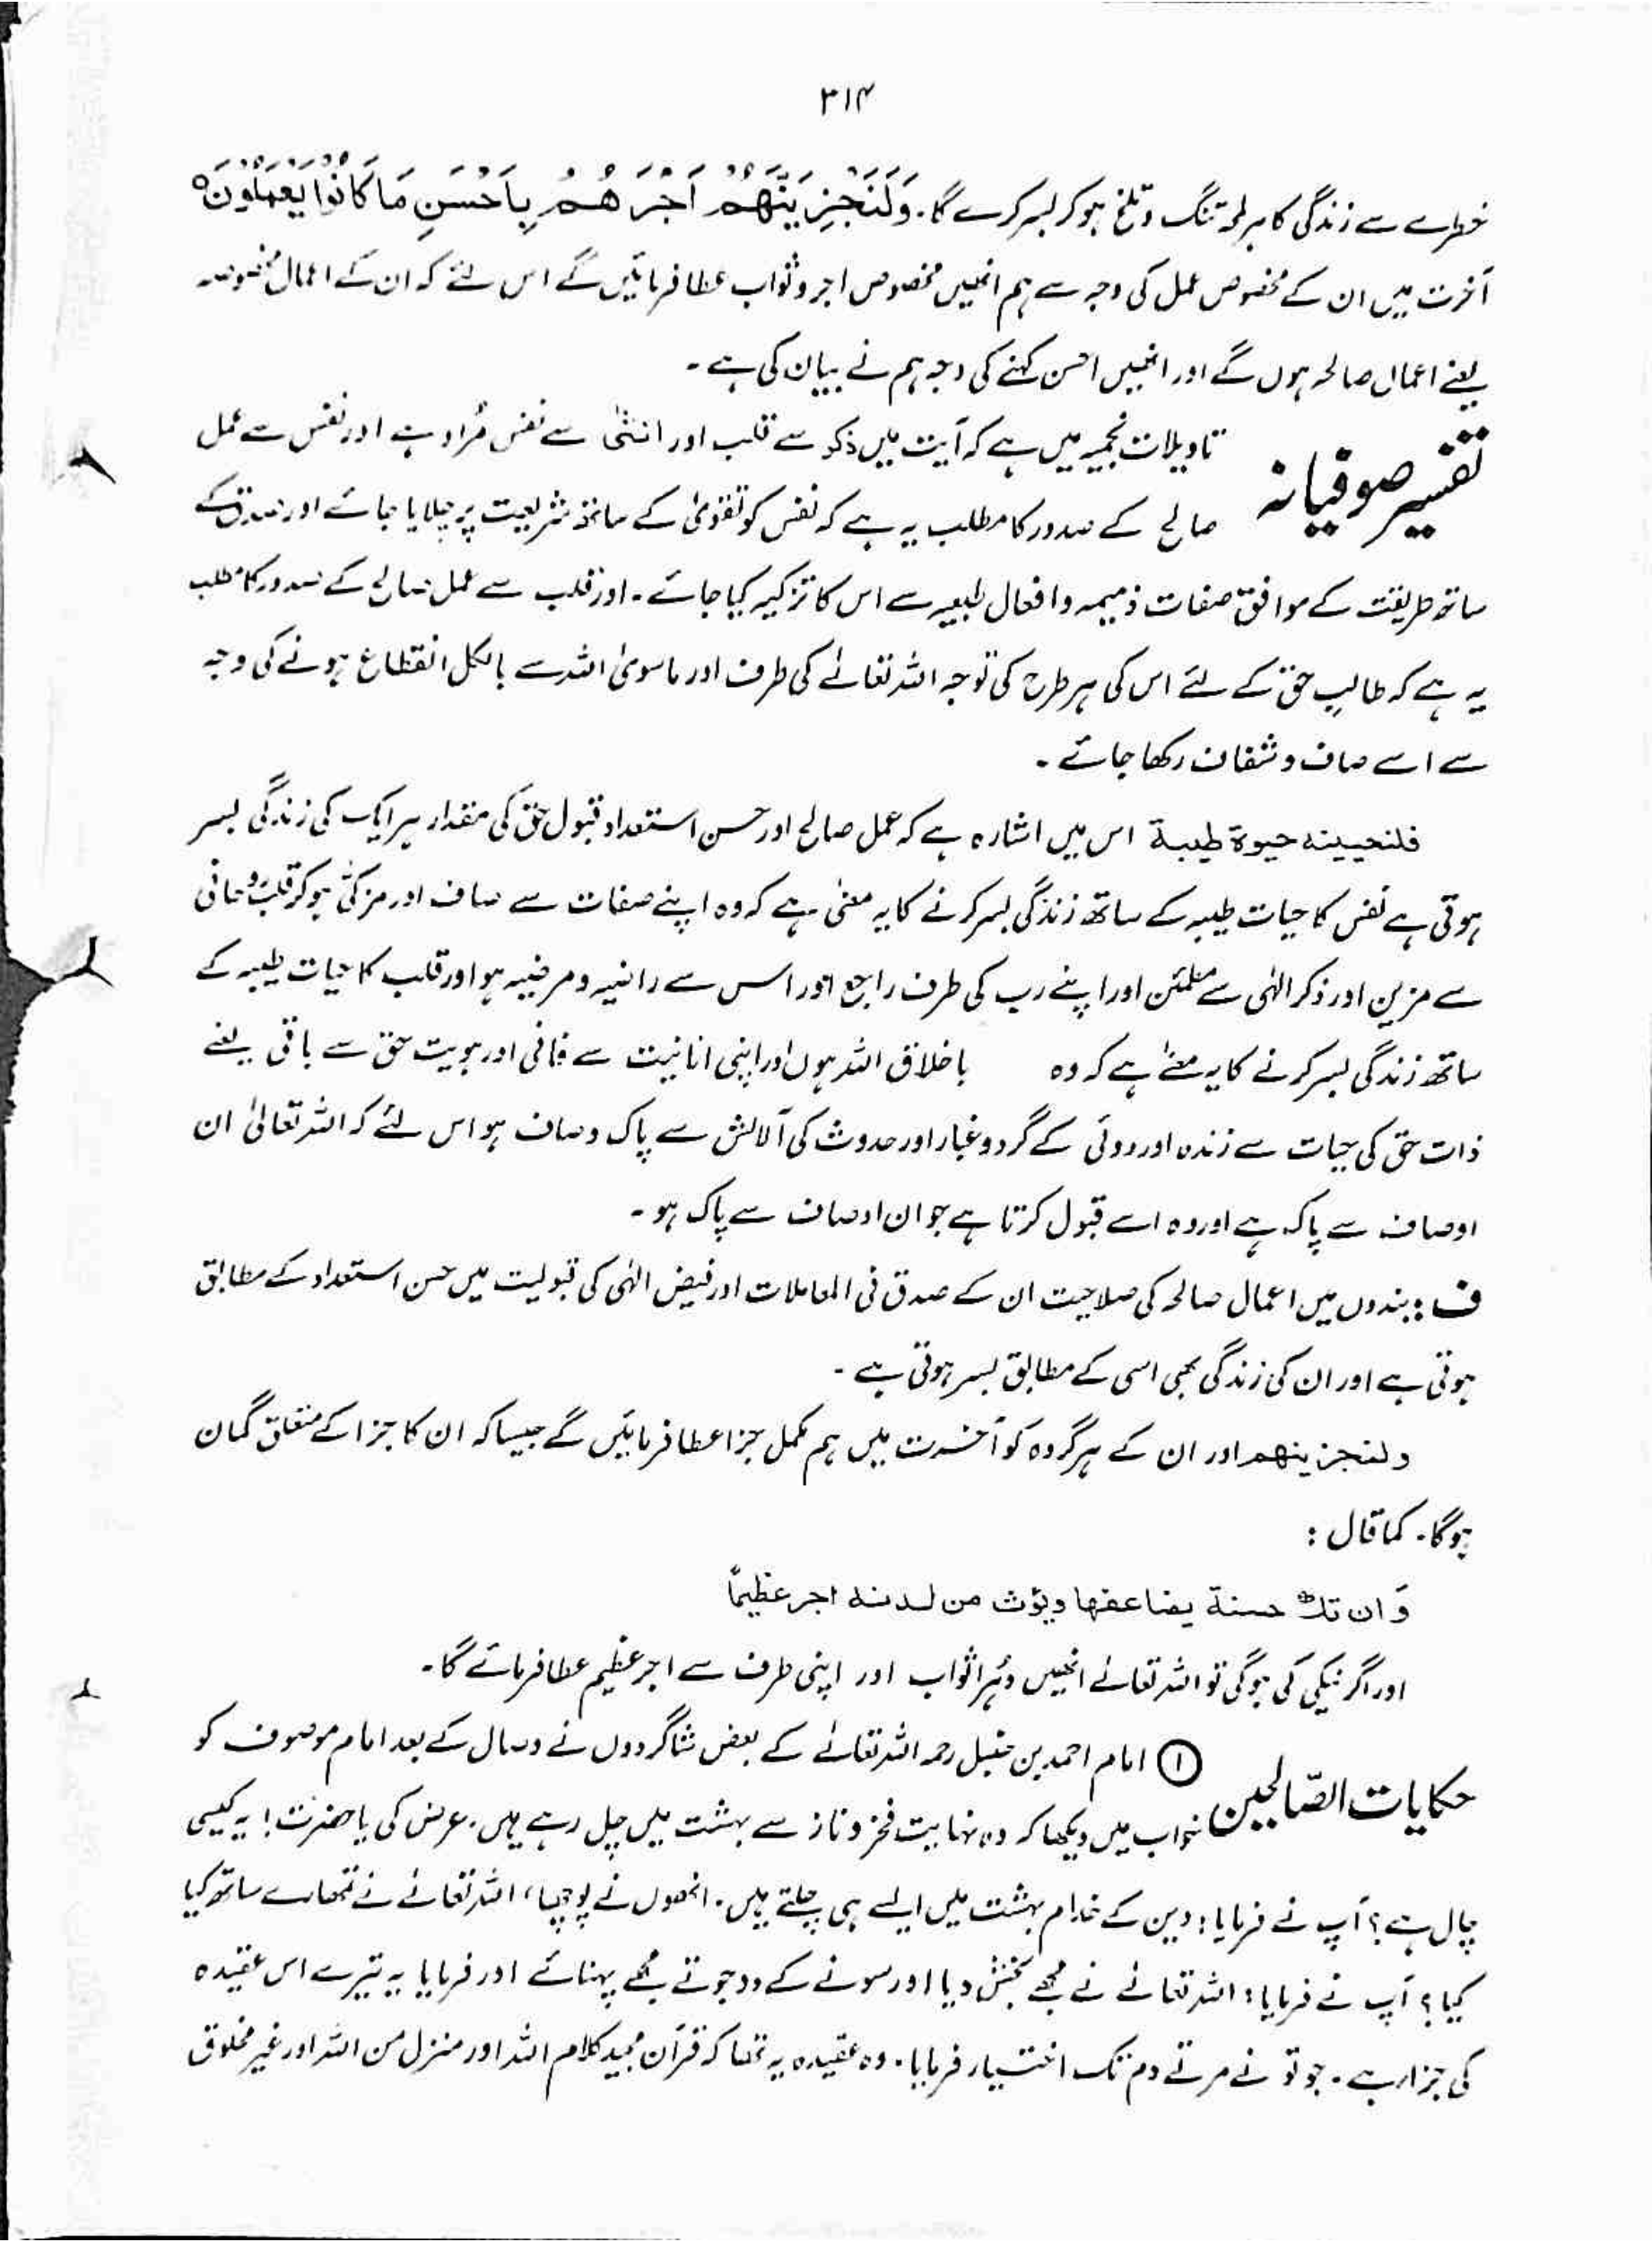 ۳۱۴
خطرے سے زندگی کا ہر لمحہ تنگ و تلخ ہو کر بسر کرے گا۔ وَلَنَجْزِيَنَّهُمْ اَجْرَهُمْ بِاَحْسَنِ مَا كَانُوْا يَعْمَلُوْنَ ہ
آخرت میں ان کے مخصوص عمل کی وجہ سے ہم انھیں مخصوص اجر و ثواب عطا فرمائیں گے اس لئے کہ ان کے اعمال مخصوصہ
یعنے اعمال صالحہ ہوں گے اور انھیں احسن کہنے کی وجہ ہم نے بیان کی ہے۔
تفسیر صوفیانہ تاویلات نجمیہ میں ہے کہ آیت میں ذکر سے قلب اور انثیٰ سے نفس مُراد ہے اور نفس سے عمل
صالح کے صدور کا مطلب یہ ہے کہ نفس کو تقویٰ کے ساتھ شریعت پر چلایا جائے اور صدق کے
ساتھ طریقت کے موافق صفات ذمیمہ و افعال طبعیہ سے اس کا تزکیہ کیا جائے۔ اور قلب سے عمل صالح کے صدور کا مطلب
یہ ہے کہ طالبِ حق کے لئے اس کی ہر طرح کی توجہ اللہ تعالےٰ کی طرف اور ماسویٰ اللہ سے بالکل انقطاع ہونے کی وجہ
سے اسے صاف و شفاف رکھا جائے۔
فلنحیینہ حیوۃ طیبۃ اس میں اشارہ ہے کہ عمل صالح اور حسن استعداد قبول حق کی مقدار ہر ایک کی زندگی بسر
ہوتی ہے نفس کا حیات طیبہ کے ساتھ زندگی بسر کرنے کا یہ معنیٰ ہے کہ وہ اپنے صفات سے صاف اور مزکّٰی ہو کر قلب روحانی
سے مزین اور ذکر الٰہی سے مطمئن اور اپنے رب کی طرف راجع اور اس سے راضیہ و مرضیہ ہو اور قلب کا حیات طیبہ کے
ساتھ زندگی بسر کرنے کا یہ معنےٰ ہے کہ وہ باخلاق اللہ ہوں اور اپنی انانیت سے فانی اور ہویت حق سے باقی یعنے
ذات حق کی حیات سے زندہ اور دوئی کے گرد و غبار اور حدوث کی آلائش سے پاک و صاف ہو اس لئے کہ اللہ تعالیٰ ان
اوصاف سے پاک ہے اور وہ اسے قبول کرتا ہے جو ان اوصاف سے پاک ہو۔
ف : بندوں میں اعمال صالحہ کی صلاحیت ان کے صدق فی المعاملات اور فیض الٰہی کی قبولیت میں حسن استعداد کے مطابق
ہوتی ہے اور ان کی زندگی بھی اسی کے مطابق بسر ہوتی ہے۔
ولنجزینھم اور ان کے ہر گروہ کو آخرت میں ہم مکمل جزا عطا فرمائیں گے جیسا کہ ان کا جزا کے متعلق گمان
ہوگا۔ کما قال :
وَ ان تک حسنۃ یضاعفھا ویؤت من لدنہ اجر عظیماً
اور اگر نیکی کی ہوگی تو اللہ تعالےٰ انھیں دُہرا ثواب اور اپنی طرف سے اجر عظیم عطا فرمائے گا۔
حکایات الصّالحین ① امام احمد بن حنبل رحمہ اللہ تعالےٰ کے بعض شاگردوں نے وصال کے بعد امام موصوف کو
خواب میں دیکھا کہ وہ نہایت فخر و ناز سے بہشت میں چل رہے ہیں۔ عرض کی یا حضرت! یہ کیسی
چال ہے؟ آپ نے فرمایا: دین کے خدام بہشت میں ایسے ہی چلتے ہیں۔ انھوں نے پوچھا، اللہ تعالےٰ نے تمھارے ساتھ کیا
کیا؟ آپ نے فرمایا: اللہ تعالےٰ نے مجھے بخش دیا اور سونے کے دو جوتے مجھے پہنائے اور فرمایا یہ تیرے اس عقیدہ
کی جزا ہے۔ جو تو نے مرتے دم تک اختیار فرمایا۔ وہ عقیدہ یہ تھا کہ قرآن مجید کلام اللہ اور منزل من اللہ اور غیر مخلوق